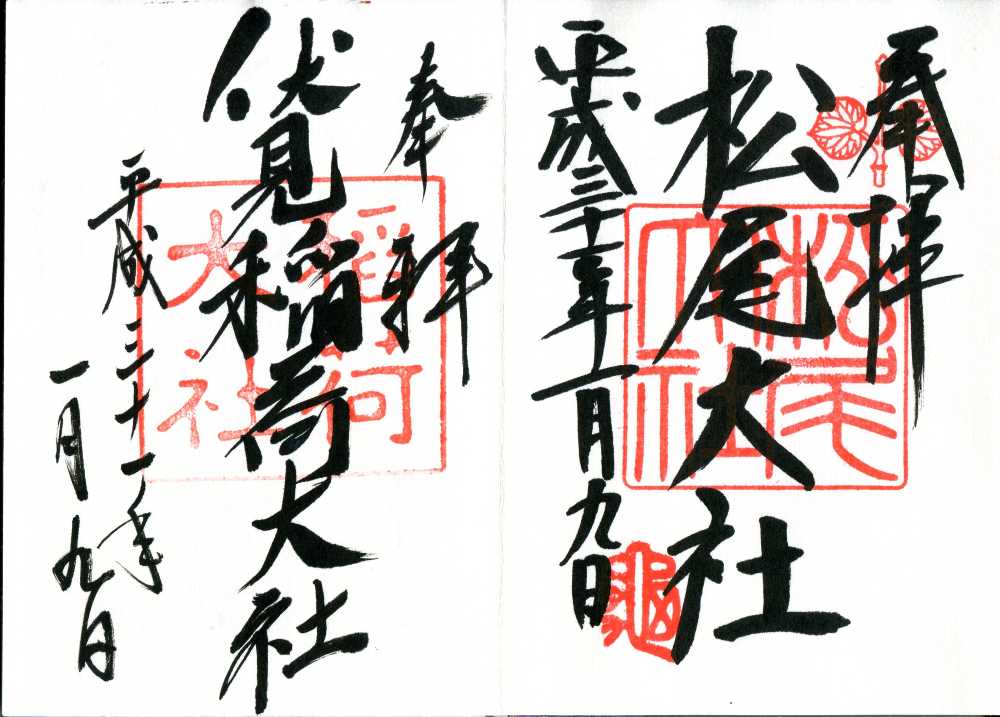 奉拝
松尾大社
平成三十一年一月九日
松尾大社
奉拝
伏見稲荷大社
平成三十一年
一月九日
稲荷大社